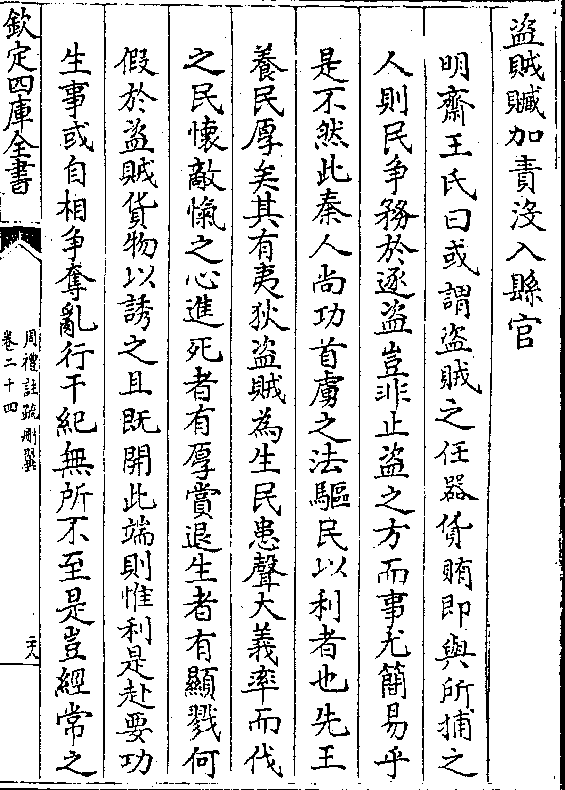 盜賊贓加責沒入縣官
明齋王氏曰或謂盜賊之任器貨賄即與所捕之
人則民争務於逐盜豈非止盜之方而事尤簡易乎
是不然此秦人尚功首虜之法驅民以利者也先王
養民厚矣其有夷狄盜賊為生民患聲大義率而伐
之民懐敵愾之心進死者有厚賞退生者有顯戮何
假於盜賊貨物以誘之且既開此端則惟利是赴要功
生事或自相争奪亂行干紀無所不至是豈經常之
欽定四庫全書
周禮註疏刪翼
卷二十四
二十八